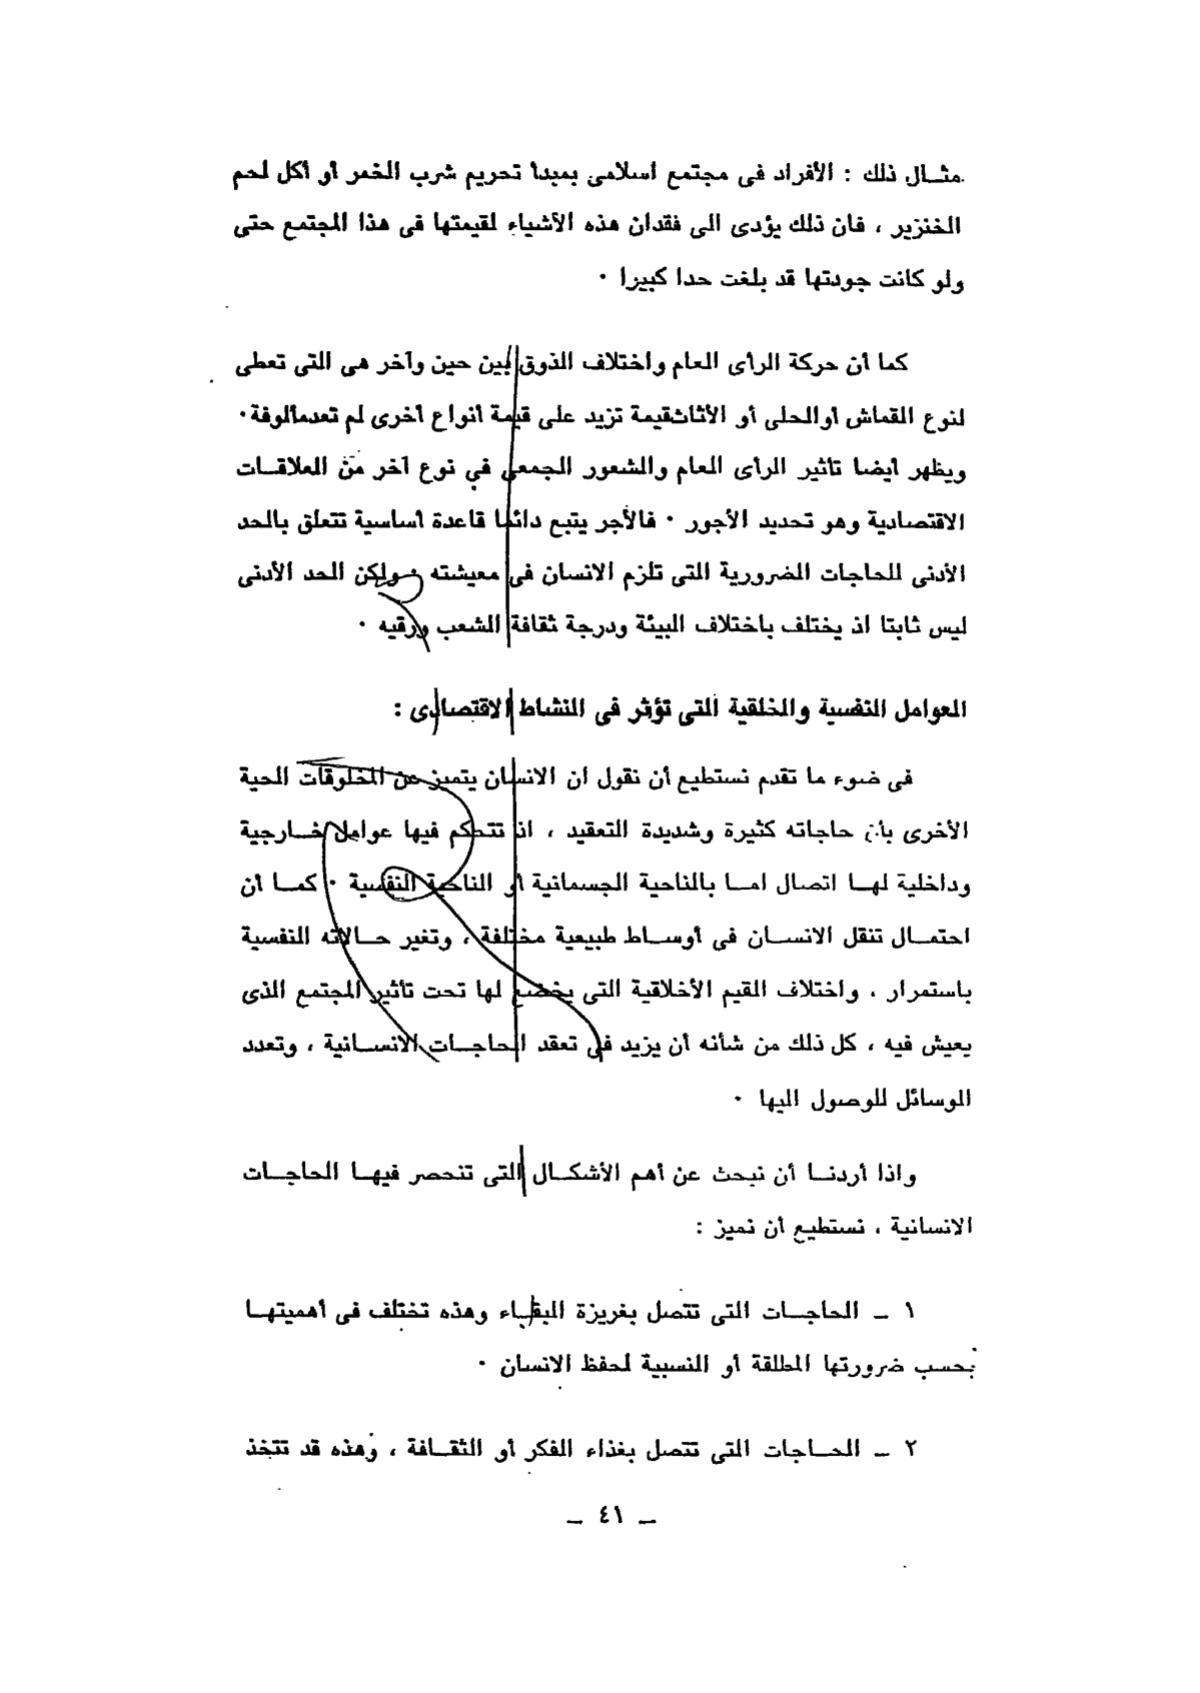 مثال ذلك : الأفراد فى مجتمع اسلامى بمبدأ تحريم شرب الخمر أو أكل لحم
الخنزير ، فان ذلك يؤدى الى فقدان هذه الأشياء لقيمتها فى هذا المجتمع حتى
ولو كانت جودتها قد بلغت حدا كبيرا ٠
كما أن حركة الرأى العام واختلاف الذوق بين حين وآخر هى التى تعطى
لنوع القماش أوالحلى أو الأثاثقيمة تزيد على قيمة أنواع أخرى لم تعدمألوفة٠
ويظهر أيضا تأثير الرأى العام والشعور الجمعى في نوع آخر من العلاقات
الاقتصادية وهو تحديد الأجور ٠ فالأجر يتبع دائما قاعدة أساسية تتعلق بالحد
الأدنى للحاجات الضرورية التى تلزم الانسان فى معيشته ٠ ولكن الحد الأدنى
ليس ثابتا اذ يختلف باختلاف البيئة ودرجة ثقافة الشعب ورقيه ٠
العوامل النفسية والخلقية التى تؤثر فى النشاط الاقتصادى :
فى ضوء ما تقدم نستطيع أن نقول ان الانسان يتميز عن المخلوقات الحية
الأخرى بأن حاجاته كثيرة وشديدة التعقيد ، اذ تتحكم فيها عوامل خارجية
وداخلية لها اتصال اما بالناحية الجسمانية أو الناحية النفسية ٠ كما أن
احتمال تنقل الانسان فى أوساط طبيعية مختلفة ، وتغير حالاته النفسية
باستمرار ، واختلاف القيم الأخلاقية التى يخضع لها تحت تأثير المجتمع الذى
يعيش فيه ، كل ذلك من شأنه أن يزيد فى تعقد الحاجات الانسانية ، وتعدد
الوسائل للوصول اليها ٠
واذا أردنا أن نبحث عن أهم الأشكال التى تنحصر فيها الحاجات
الانسانية ، نستطيع أن نميز :
١ ـ الحاجات التى تتصل بغريزة البقاء وهذه تختلف فى أهميتها
بحسب ضرورتها المطلقة أو النسبية لحفظ الانسان ٠
٢ ـ الحاجات التى تتصل بغذاء الفكر أو الثقافة ، وهذه قد تتخذ
ـ ٤١ ـ